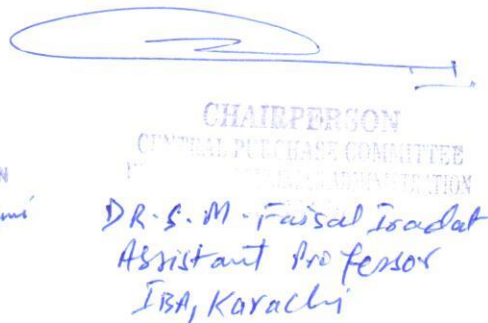 CHAIRPERSON
CENTRAL PURCHASE COMMITTEE
DR. S. M. Faisal Iradat
Assistant Professor
IBA, Karachi